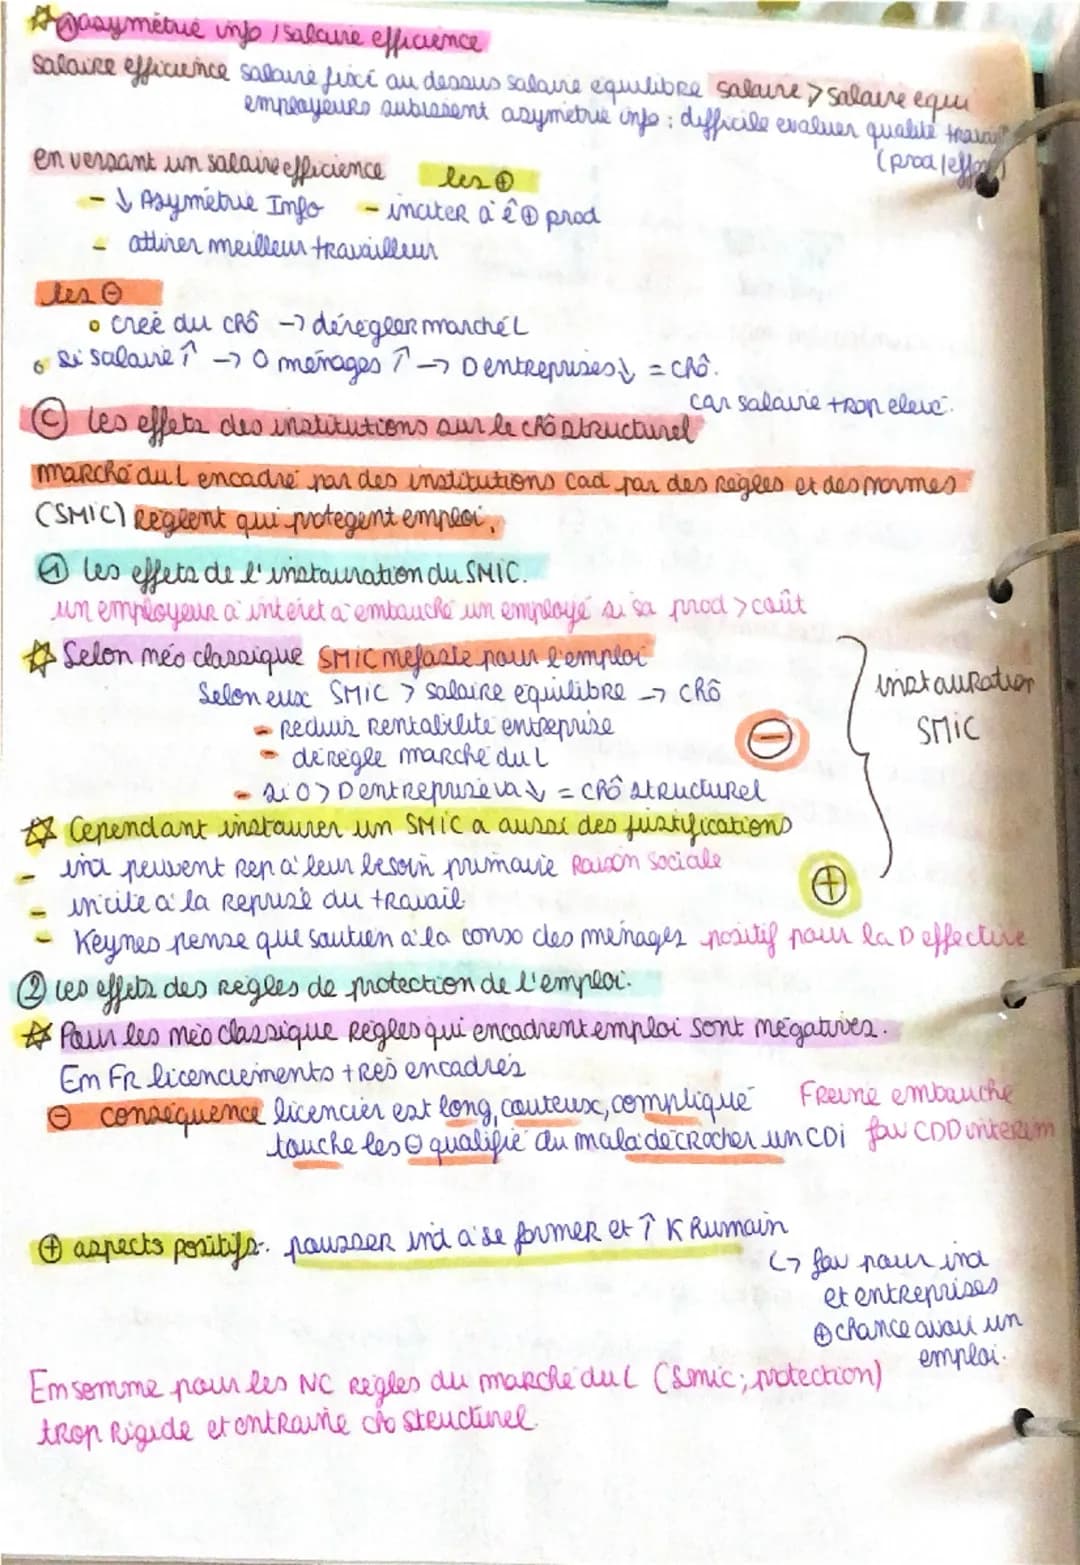 ① asymétrie info / salaire efficience
salaire efficience salaire fixé au dessus salaire equilibre salaire > salaire equi
employeurs subissent asymetrie info : difficile evaluer qualité travail
(prod/effort)
en versant un salaire efficience les ⊕
- ↓ Asymétrie Info - inciter à ê ⊕ prod
- attirer meilleur travailleur
les ⊖
• creé du chô → dérégler marché L
• si salaire ↑ → O ménages ↑ → D entreprises ↓ = chô.
car salaire trop elevé.
Ⓒ les effets des institutions sur le chô structurel
marché du L encadré par des institutions cad par des règles et des normes
(SMIC) Reglent qui protegent emploi,
① les effets de l'instauration du SMIC.
un employeur a interet a embauché un employé si sa prod > coût
Selon néo classique SMIC néfaste pour l'emploi
Selon eux SMIC > salaire equilibre → chô
- reduis rentabilité entreprise
- dérègle marché du L
- si O > D entreprise va ↓ = chô structurel
instauration
SMIC
⊖
Cependant instaurer un SMIC a aussi des justifications
- ind peuvent rep à leur besoin primaire Raison sociale
- incite à la reprise du travail
- Keynes pense que soutien à la conso des ménages positif pour la D effective
⊕
② les effets des règles de protection de l'emploi.
Pour les néo classique règles qui encadrent emploi sont négatives.
En FR licenciements très encadrés
⊖ conséquence licencier est long, couteux, compliqué Freine embauche
touche les ⊖ qualifié du mal a décrocher un CDI fav CDD interim
⊕ aspects positifs. pousser ind a se former et ↑ K humain
↳ fav pour ind
et entreprises
⊕ chance avoir un
emploi.
En somme pour les NC règles du marché du L (smic ; protection)
trop rigide et entraine chô structurel.